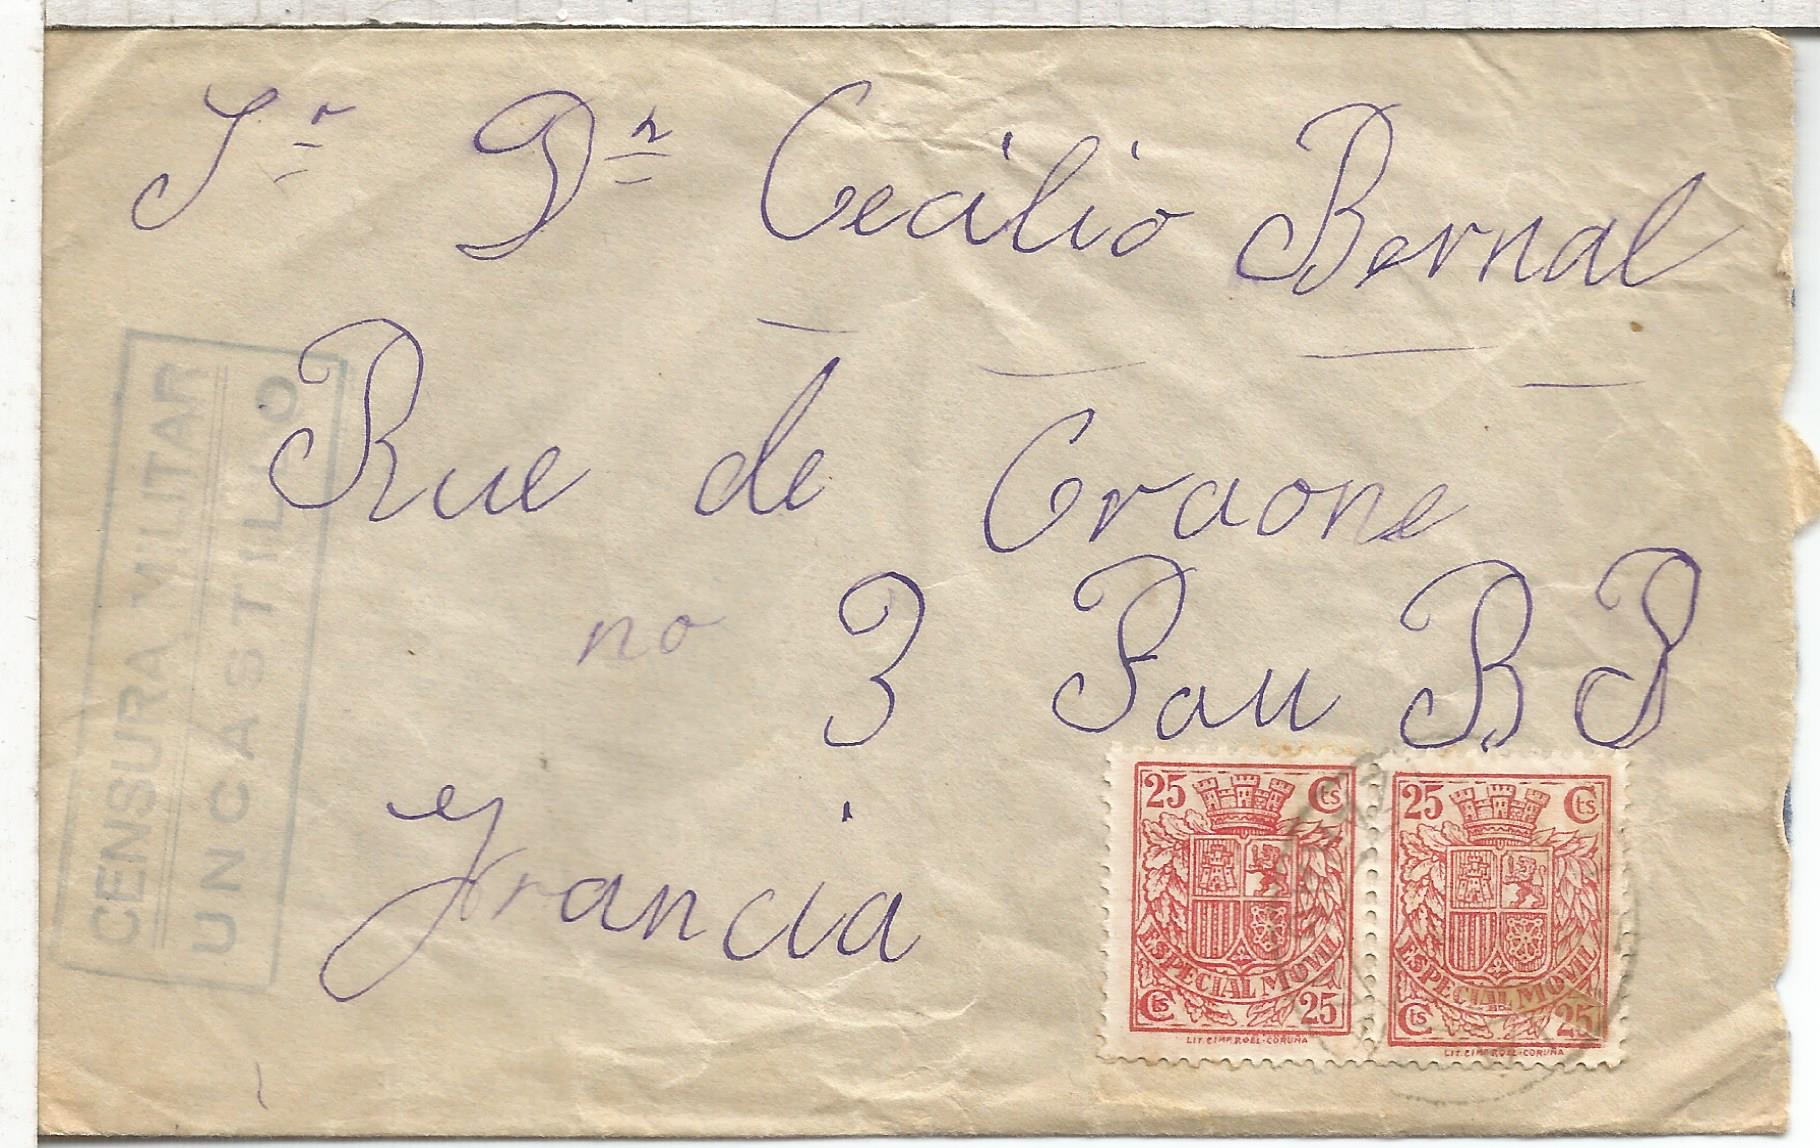 Sr Dn Cecilio Bernal
Rue de Craone
no 3 Pau B P
Francia
CENSURA MILITAR
UNCASTILLO
25 Cts
ESPECIAL MOVIL
Cts 25
LIT. E IMP. ROEL-CORUÑA
25 Cts
ESPECIAL MOVIL
Cts 25
LIT. E IMP. ROEL-CORUÑA